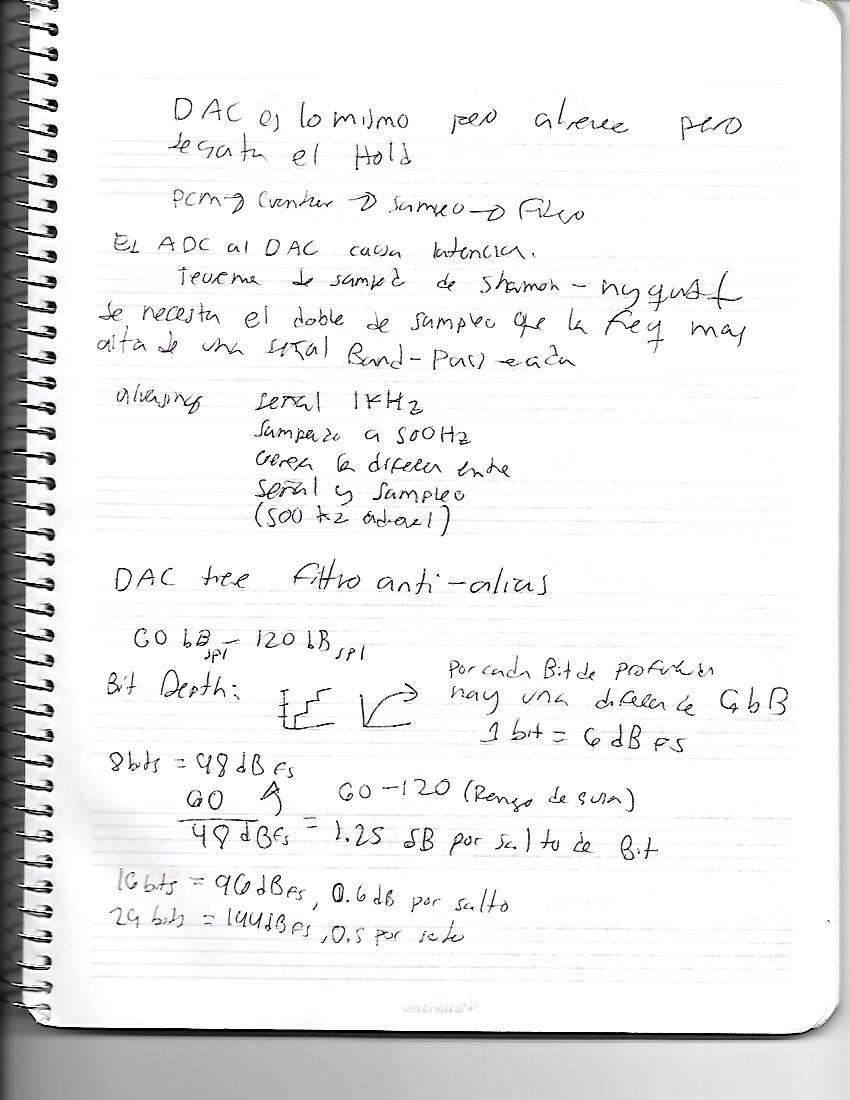 DAC es lo mismo pero alreve pero
se gasta el Hold
PCM → Counter → Sampleo → Filtro
EL ADC al DAC causa latencia.
Teorema de sampleo de Shannon - nyquist
se necesita el doble de sampleo que la freq mas
alta de una señal Band-Pass eada
aliasing señal 1kHz
Sampeado a 500Hz
Genera la diferen entre
señal y sampleo
(500 Hz)
DAC tiene filtro anti-alias
60 dB spl - 120 dB spl
Bit Depth:
Por cada Bit de profun
hay una diferen de 6dB
1 bit = 6 dB FS
8bits = 48dB FS
60 60 - 120 (Rango de)
48 dBFS = 1.25 dB por salto de Bit
16 bits = 96dBFS, 0.6dB por salto
24 bits = 144dBFS, 0.5 por salto
astralia